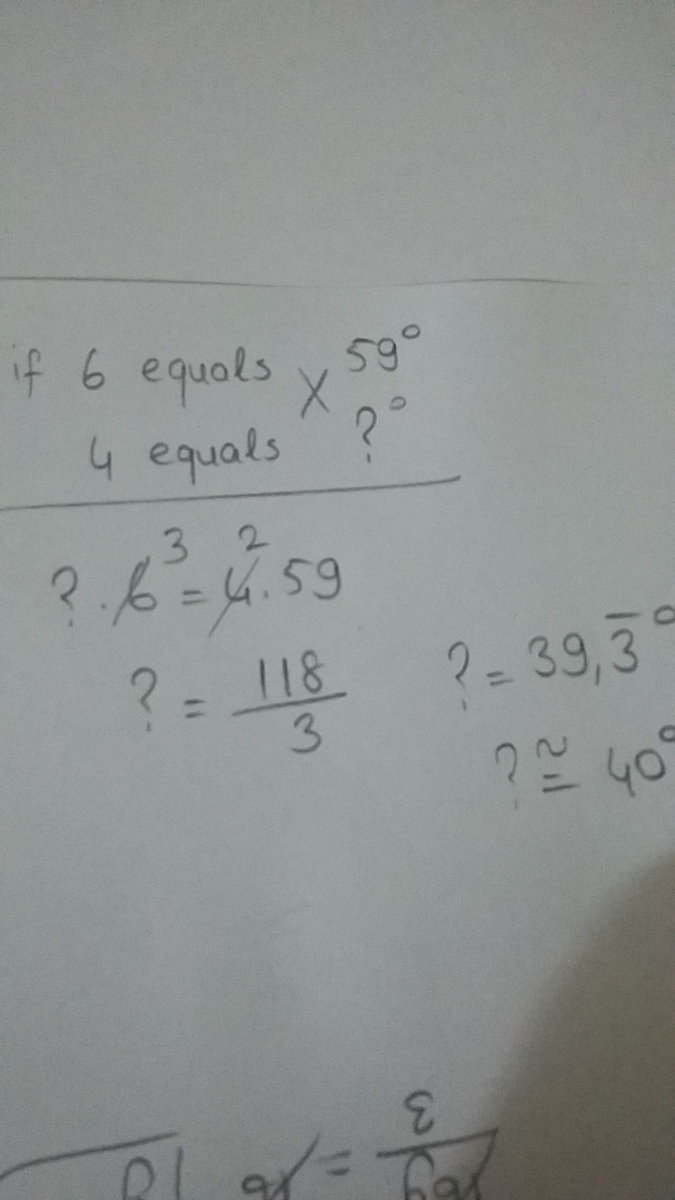 if 6 equals × 59°
4 equals ?°
? . 6 3 = 4 2 . 59
? = 118 / 3
? = 39,3̅°
? ≅ 40°